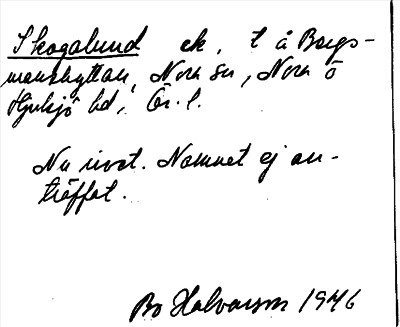 Skogalund ek, t å Bergs-
manshyttan, Nora sn, Nora o
Hjulsjö hd, Ör. l.
Nu rivet. Namnet ej an-
träffat.
Bo Halvarson 1946